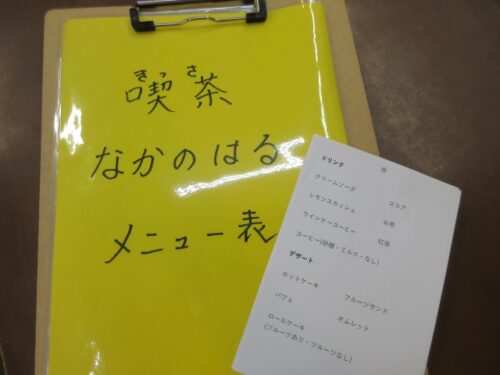 きっさ
喫茶
なかのはる
メニュー表
ドリンク 様
クリームソーダ ココア
レモンスカッシュ お茶
ウインナーコーヒー 紅茶
コーヒー(砂糖・ミルク・なし)
デザート
ホットケーキ フルーツサンド
パフェ オムレット
ロールケーキ
(フルーツあり・フルーツなし)